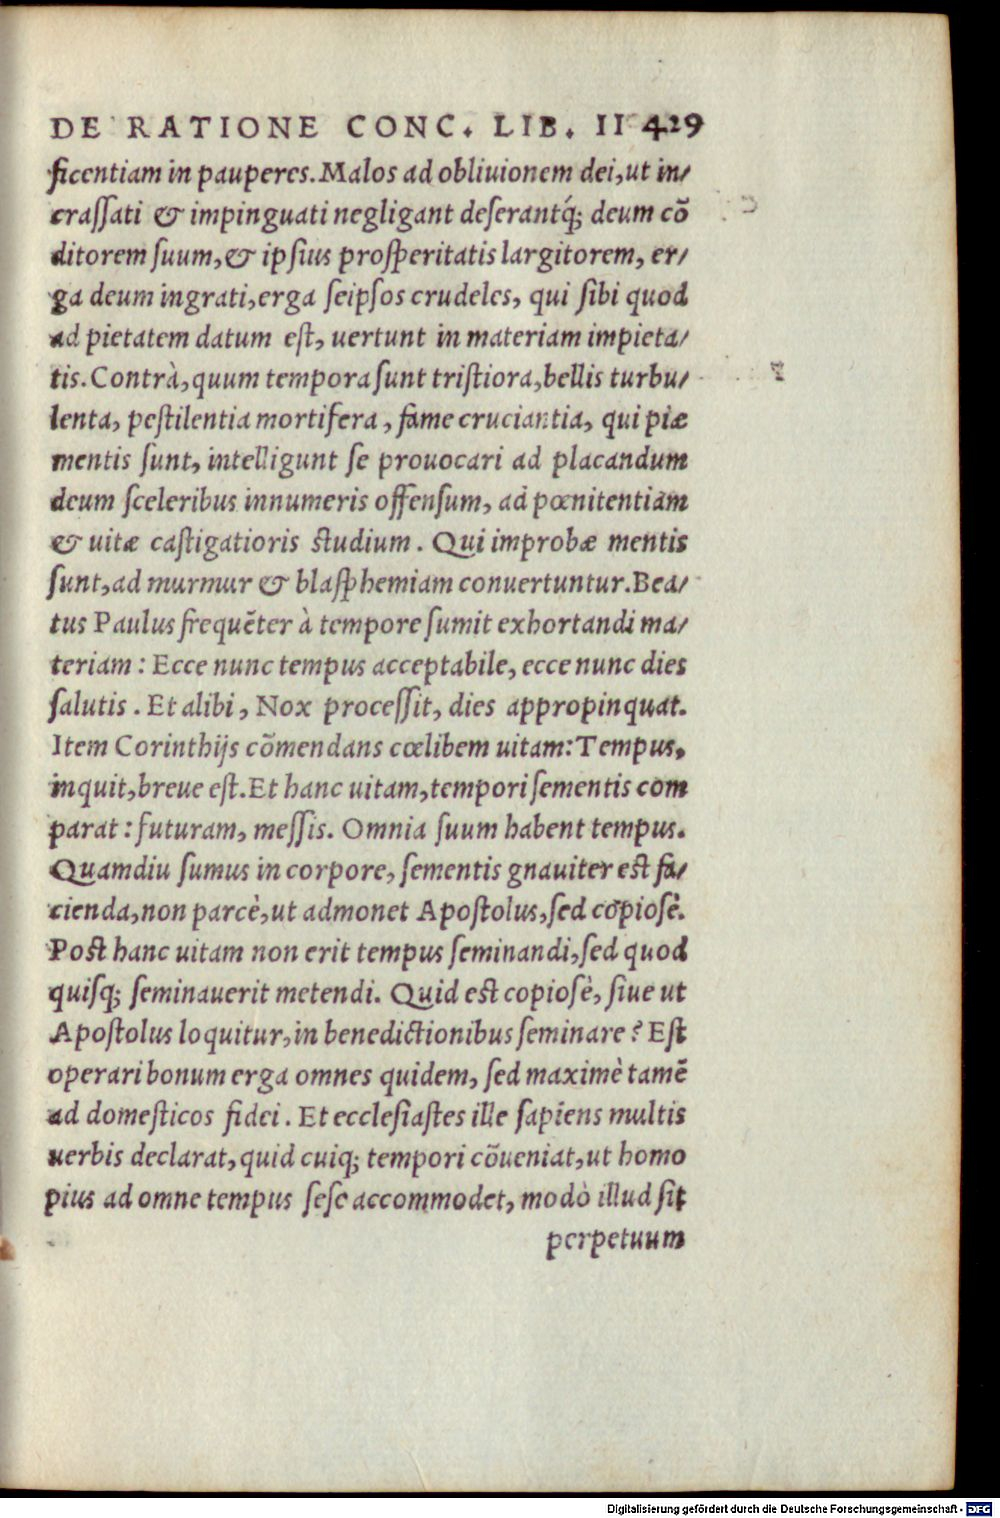 DE RATIONE CONC. LIB. II 429
ficentiam in pauperes. Malos ad obliuionem dei, ut in/
crassati & impinguati negligant deserantq́; deum cõ
ditorem suum, & ipsius prosperitatis largitorem, er/
ga deum ingrati, erga seipsos crudeles, qui sibi quod
ad pietatem datum est, uertunt in materiam impieta/
tis. Contrà, quum tempora sunt tristiora, bellis turbu/
lenta, pestilentia mortifera, fame cruciantia, qui piæ
mentis sunt, intelligunt se prouocari ad placandum
deum sceleribus innumeris offensum, ad pœnitentiam
& uitæ castigatioris studium. Qui improbæ mentis
sunt, ad murmur & blasphemiam conuertuntur. Bea/
tus Paulus frequẽter à tempore sumit exhortandi ma/
teriam: Ecce nunc tempus acceptabile, ecce nunc dies
salutis. Et alibi, Nox processit, dies appropinquat.
Item Corinthijs cõmendans cœlibem uitam: Tempus,
inquit, breue est. Et hanc uitam, tempori sementis com
parat: futuram, messis. Omnia suum habent tempus.
Quamdiu sumus in corpore, sementis gnauiter est fa/
cienda, non parcè, ut admonet Apostolus, sed copiosè.
Post hanc uitam non erit tempus seminandi, sed quod
quisq; seminauerit metendi. Quid est copiosè, siue ut
Apostolus loquitur, in benedictionibus seminare? Est
operari bonum erga omnes quidem, sed maximè tamẽ
ad domesticos fidei. Et ecclesiastes ille sapiens multis
uerbis declarat, quid cuiq; tempori cõueniat, ut homo
pius ad omne tempus sese accommodet, modò illud sit
perpetuum
Digitalisierung gefördert durch die Deutsche Forschungsgemeinschaft - DFG